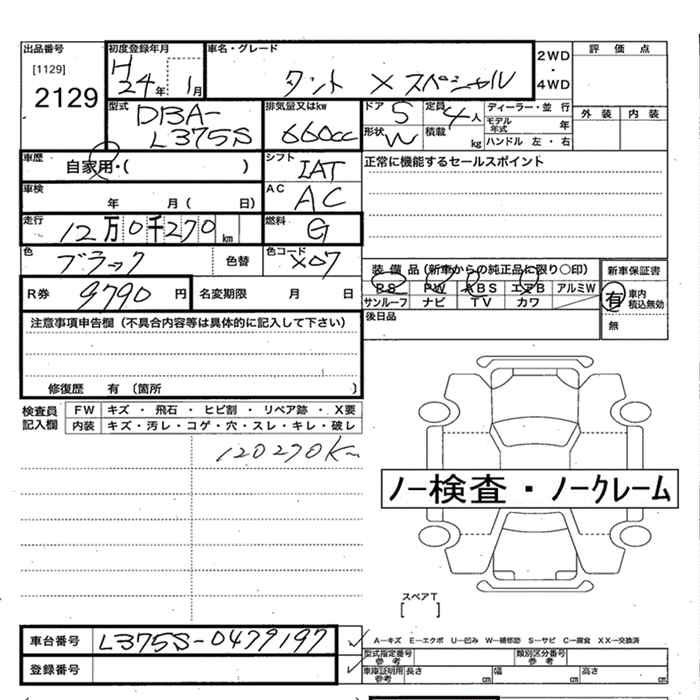 出品番号 初度登録年月 車名・グレード 2WD・4WD 評価点
[1129]
2129
H24年 1月
タント Xスペシャル
型式 DBA-L375S
排気量又はkw 660cc
ドア 5 定員 4人
形状 W 積載 kg
ディーラー・並行
モデル年式 年
ハンドル 左・右
外装 内装
車歴 自家用・( )
シフト IAT
正常に機能するセールスポイント
車検 年 月( 日)
AC AC
走行 12万0千270km
燃料 G
色 ブラック 色替
色コード X07
装備品(新車からの純正品に限り○印)
PS PW ABS エアB アルミW
サンルーフ ナビ TV カワ
新車保証書
有 車内積込無効
無
R券 9790円 名変期限 月 日
後日品
注意事項申告欄(不具合内容等は具体的に記入して下さい)
修復歴 有〔箇所 〕
検査員記入欄
FW キズ・飛石・ヒビ割・リペア跡・X要
内装 キズ・汚レ・コゲ・穴・スレ・キレ・破レ
120270K
ノー検査・ノークレーム
スペアT
[ ]
車台番号 L375S-0479197
登録番号
A―キズ E―エクボ U―凹み W―補修跡 S―サビ C―腐食 XX―交換済
型式指定番号 参考 類別区分番号 参考
車庫証明用参考 長さ cm 幅 cm 高さ cm